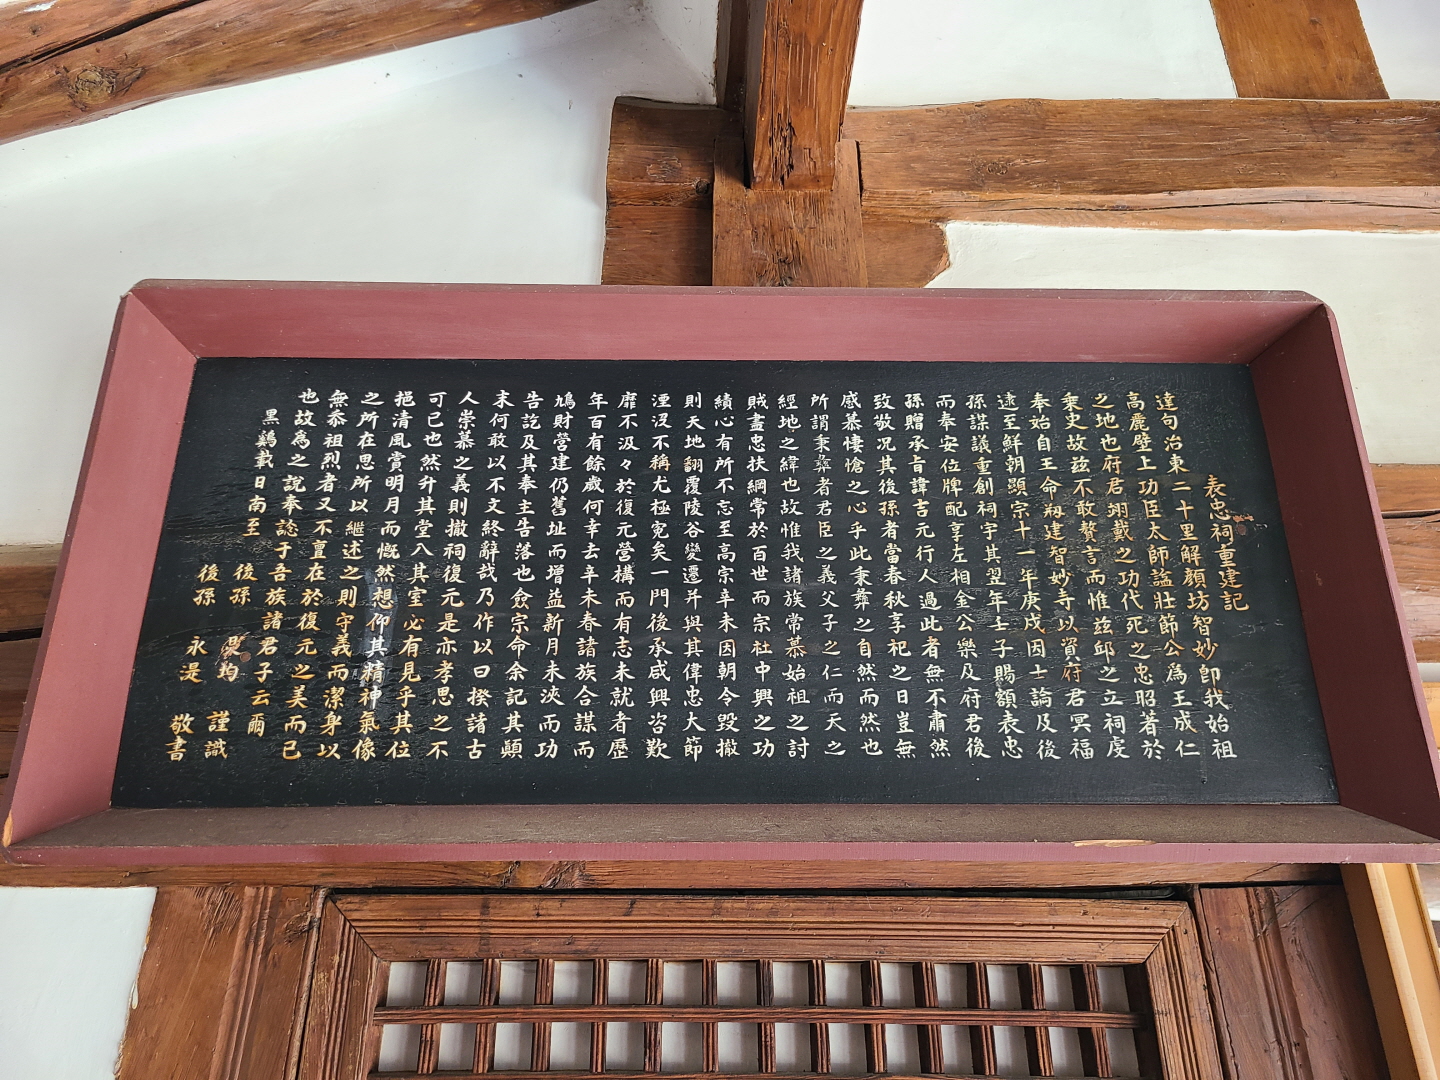 表忠祠重建記
達句治東二十里解顏坊智妙卽我始祖
高麗壁上功臣太師謚壯節公爲王成仁
之地也府君翊戴之功代死之忠昭著於
乘史故玆不敢贅言而惟玆邱之立祠虔
奉始自王命刱建智妙寺以資府君冥福
逮至鮮朝顯宗十一年庚戌因士論及後
孫謀議重創祠宇其翌年士子賜額表忠
而奉安位牌配享左相金公樂及府君後
孫贈承旨諱吉元行人過此者無不肅然
致敬况其後孫者當春秋享祀之日豈無
感慕悽愴之心乎此秉彝之自然而然也
所謂秉彝者君臣之義父子之仁而天之
經地之緯也故惟我諸族常慕始祖之討
賊盡忠扶綱常於百世而宗社中興之功
績心有所不忘至高宗辛未因朝令毀撤
則天地翻覆陵谷變遷并與其偉忠大節
湮沒不稱尤極寃矣一門後承咸興咨歎
靡不汲々於復元營構而有志未就者歷
年百有餘歲何幸去辛未春諸族合謀而
鳩財營建仍舊址而增益新月未浹而功
告訖及其奉主告落也僉宗命余記其顚
末何敢以不文終辭哉乃作以曰揆諸古
人崇慕之義則撤祠復元是亦孝思之不
可已也然升其堂入其室必有見乎其位
挹清風賞明月而慨然想仰其精神氣像
之所在思所以繼述之則守義而潔身以
無忝祖烈者又不亶在於復元之美而已
也故爲之說奉諗于吾族諸君子云爾
黑鷄載日南至
後孫 均 謹識
後孫 永湜 敬書